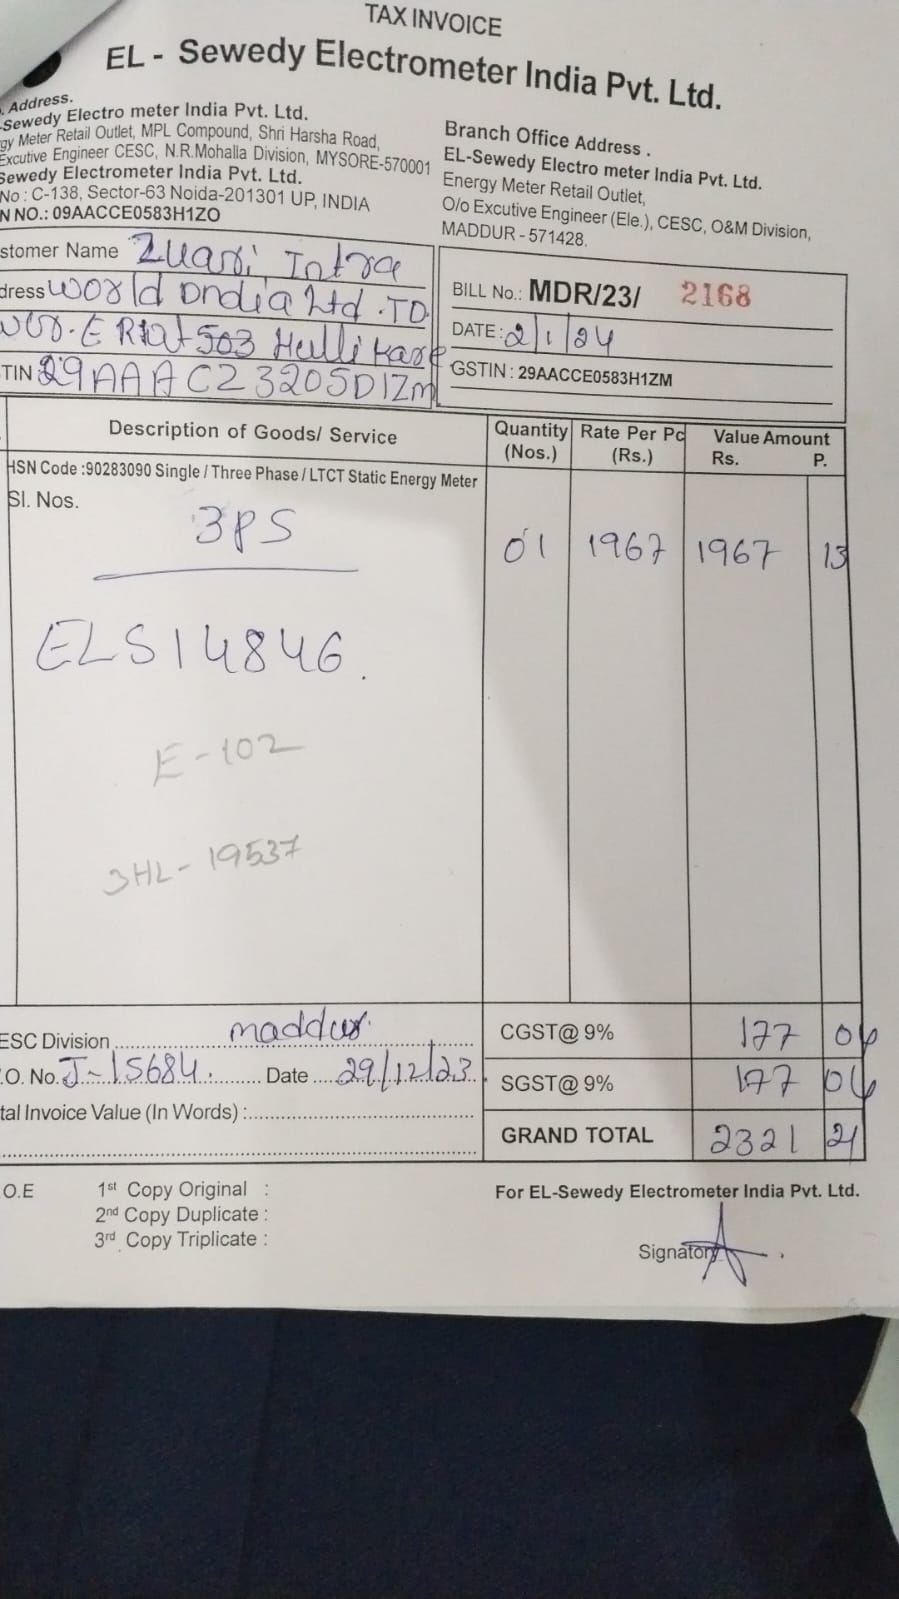 TAX INVOICE
EL - Sewedy Electrometer India Pvt. Ltd.
. Address.
-Sewedy Electro meter India Pvt. Ltd.
gy Meter Retail Outlet, MPL Compound, Shri Harsha Road,
Excutive Engineer CESC, N.R.Mohalla Division, MYSORE-570001
Sewedy Electrometer India Pvt. Ltd.
No : C-138, Sector-63 Noida-201301 UP, INDIA
N NO.: 09AACCE0583H1ZO
Branch Office Address .
EL-Sewedy Electro meter India Pvt. Ltd.
Energy Meter Retail Outlet,
O/o Excutive Engineer (Ele.), CESC, O&M Division,
MADDUR - 571428.
stomer Name Zuari Intra
dress World India Ltd. TO
wer. E Rlat 503 Hulli kare
TIN 29AAACZ3205D1Zm
BILL No.: MDR/23/ 2168
DATE : 2/1/24
GSTIN : 29AACCE0583H1ZM
Description of Goods/ Service Quantity (Nos.) Rate Per Pc (Rs.) Value Amount Rs. P.
HSN Code :90283090 Single / Three Phase / LTCT Static Energy Meter
Sl. Nos.
3PS 01 1967 1967 13
ELS14846.
E-102
3HL-19537
ESC Division maddur.
.O. No. J-15684. Date 29/12/23
tal Invoice Value (In Words) :
CGST@ 9% 177 04
SGST@ 9% 177 04
GRAND TOTAL 2321 21
O.E 1st Copy Original :
2nd Copy Duplicate :
3rd Copy Triplicate :
For EL-Sewedy Electrometer India Pvt. Ltd.
Signatory